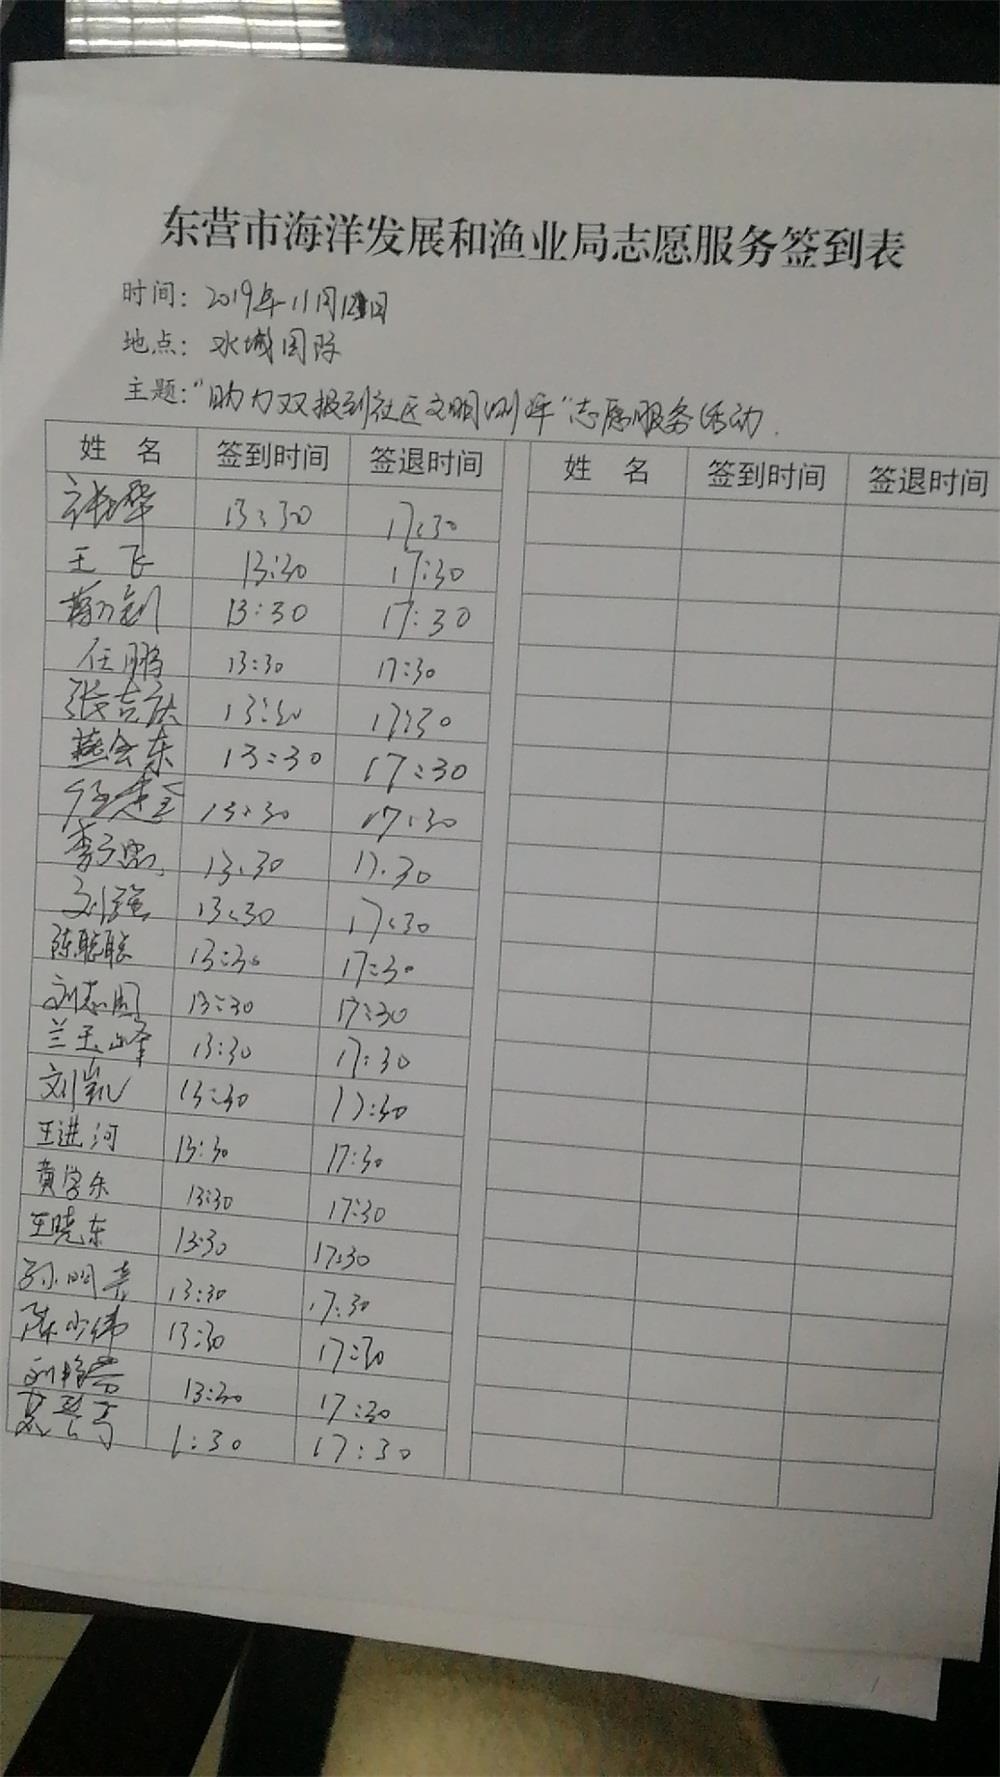 东营市海洋发展和渔业局志愿服务签到表
时间：2019年11月日
地点：水城国际
主题：“助力双报到社区文明测评”志愿服务活动.
姓 名 签到时间 签退时间 姓 名 签到时间 签退时间
13:30 17:30
王飞 13:30 17:30
13:30 17:30
任鹏 13:30 17:30
张吉庆 13:30 17:30
燕会东 13:30 17:30
13:30 17:30
13.30 17.30
刘强 13:30 17:30
陈聪聪 13:30 17:30
刘志国 13:30 17:30
兰玉峰 13:30 17:30
刘凯 13:30 17:30
王进河 13:30 17:30
黄学乐 13:30 17:30
王晓东 13:30 17:30
孙明亮 13:30 17:30
陈少伟 13:30 17:30
13:30 17:30
1:30 17:30